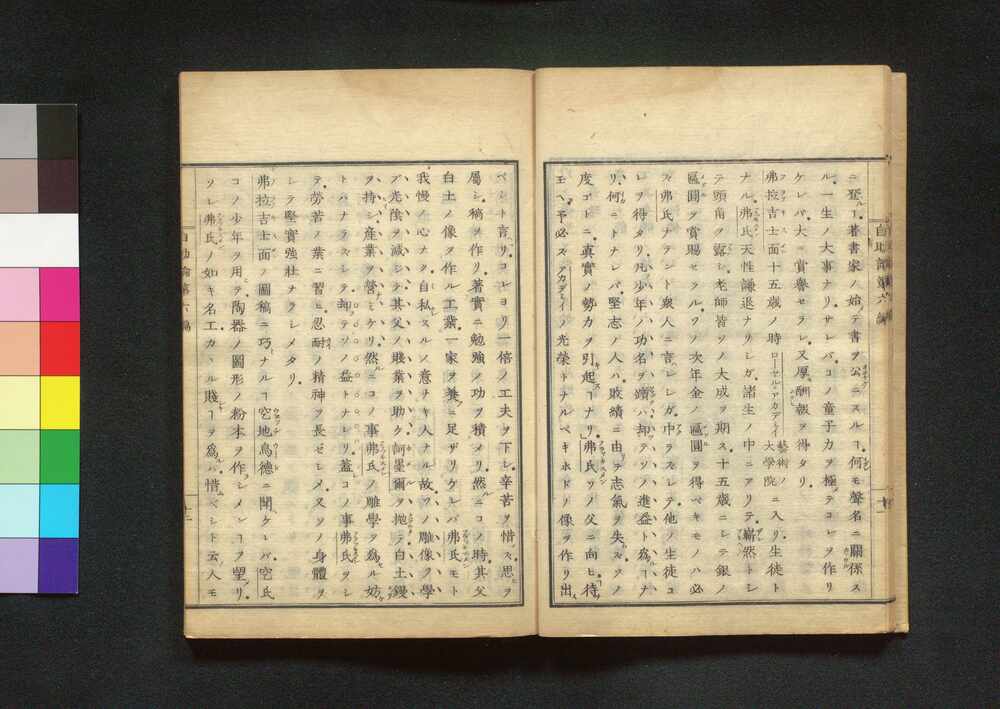 ニ登ル┐著書家ノ始テ書ヲ公ニスル┐何モ聲名ニ關係ス
ル一生ノ大事ナリサレバコノ童子力ヲ極テコレヲ作リ
ケレバ大ニ賞譽セラレ又厚酬報ヲ得タリ
弗拉吉士面十五歲ノ時ローヤルアカデメイ藝術ノ大學院ニ入リ生徒ト
ナル弗氏天性謙退ナリシガ諸生ノ中ニアリテ嶄然トシ
テ頭角ヲ露シ老師皆ソノ大成ヲ期ス十五歲ニシテ銀ノ
區圓ヲ賞賜セラルソノ次年金ノ區圓ヲ得ベキモノハ必
ズ弗氏ナラント衆人ニ言ハレシガ中ラズシテ他ノ生徒コ
レヲ得タリ凡ソ少年ノ功名ヲ躓ハ却テソノ進益ト爲┐ナ
リ何ニトナレバ堅志ノ人ハ敗績ニ由テ志氣ヲ失ハズソノ
度ゴトニ眞實ノ勢力ヲ引起┐ナリ弗氏ソノ父ニ向ヒ待
玉ヘ予必ズアカデメイノ光榮トナルベキホドノ像ヲ作リ出
ベシト言リコレヨリ一倍ノ工夫ヲ下シ辛苦ヲ惜ズ思ヲ
屬シ稿ヲ作リ著實ニ勉強ノ功ヲ積メリ然ニコノ時其父
白土ノ像ヲ作ル工業一家ヲ養ニ足ザリケレバ弗氏モト
我慢ノ心ナク自私スルノ意ナキ人ナル故ソノ雕像ヲ學
ブ光陰ヲ減シテ其父ノ賤業ヲ助ク訶墨爾ヲ拋テ白土鏝
ヲ持シ產業ヲ營ミケリ然ニコノ事弗氏ノ雕學ヲ爲ル妨
トハナラズシテ却テソノ益トナレリ蓋コノ事弗氏ヲシ
テ勞苦ノ業ニ習ヒ忍耐ノ精神ヲ長ゼシメ又ソノ身體ヲ
シテ堅實強壯ナラシメタリ
弗拉吉士面ノ圖稿ニ巧ナル┐空地烏德ニ聞ケレバ空氏
コノ少年ヲ用テ陶器ノ圖形ノ粉本ヲ作ラシメン┐ヲ望リ
ソレ弗氏ノ如キ名工カヽル賤┐ヲ爲ハ惜ムベシト云人モ
自助論第六編
十一
自助論第六編
十二